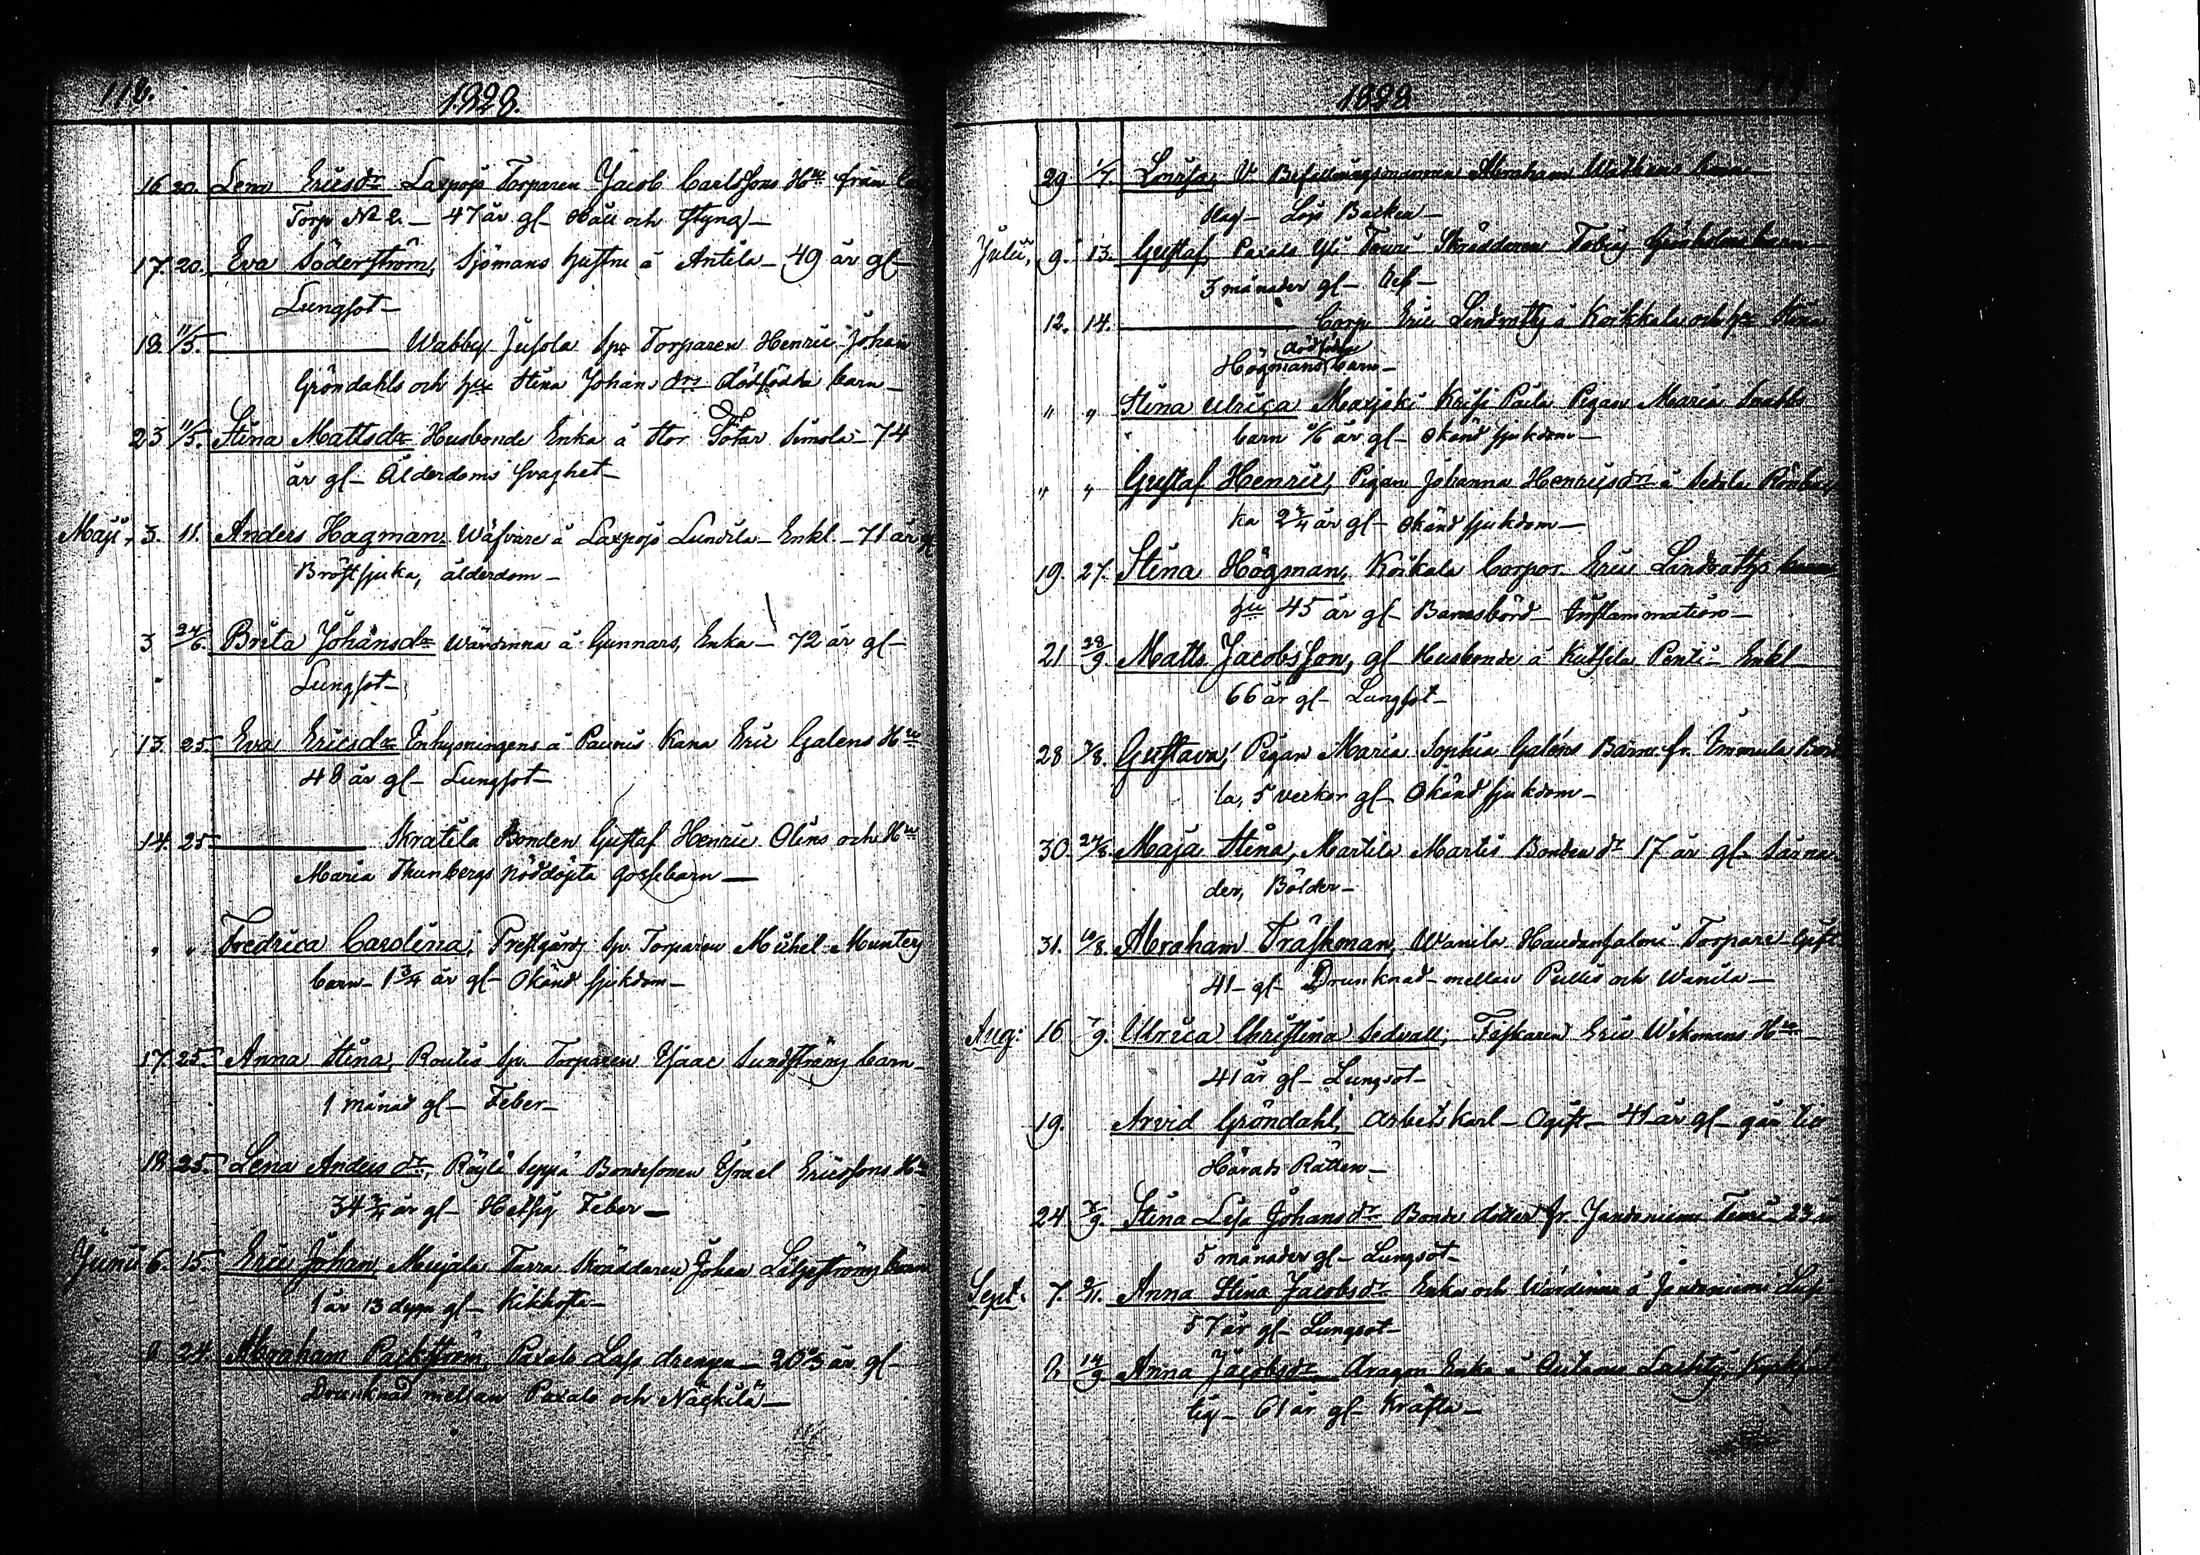 116.
1828.
16 20. Lena Ericsdr Laxpojo Torparen Jacob Carlssons Hu från
Torp No 2. — 47 år gl— Håll och styng—
17. 20. Eva Söderström, Sjömans hustru á Antila— 49 år gl—
Lungsot—
18. 11/5. ——— Wabby Jusola Sp. Torparen Henric Johan
Gröndahls och hu Stina Johansdrs dödfödda barn—
23 11/5. Stina Mattsdr Husbonde Enka á Stor Tötar Simola— 74
år gl— Ålderdoms svaghet—
Maji, 3. 11. Anders Hagman, Wäfvare á Laxpojo Lundila— Enkl.— 71 år gl
Bröstsjuka, ålderdom—
3 24/6. Brita Johansdr Wärdinna á Gunnars, Enka— 72 år gl—
Lungsot—
13. 25. Eva Ericsdr Inhysningens á Paunis Kana Eric Galens Hu
48 år gl— Lungsot—
14. 25. ——— Skratila Bonden Gustaf Henric Olins och Hu
Maria Thunbergs nöddöpta gossebarn—
" " Fredrica Carolina, Prestgårds Sp. Torparen Michel Munters
barn— 1 3/4 år gl— Okänd sjukdom—
17. 25. Anna Stina, Routis Sp. Torparen Isaac Sundströms barn—
1 månad gl— Feber—
18 25. Lena Andersdr, Röylä Seppä Bondesonen Israel Ericssons Hu
34 3/4 år gl— Hetsig Feber—
Junii 6. 15. Eric Johan, Merjola Tarra Skräddaren Johan Liljeströms barn
1 år 13 dygn gl— Kikhosta—
8 24. Abraham Packström, Paxalo Lass drengen— 20 2/3 år gl—
Drunknad mellan Paxalo och Näckilä—
1828
29 1/7. Lovisa, V. Befallningsmannen Abraham barn
Slag— Lojo Backen—
Julii, 9. 13. Gustaf, Paxalo Yli Teuri Skräddaren Tobias Grönholms barn—
3 månader gl— Ref—
12. 14. ——— Corp. Eric Lindroths á Koikkala och hu Stina
Högmans dödfödda barn—
" " Stina Ulrica Maxjoki Krisi Paila Pigan Maria
barn år gl— okänd sjukdom—
" " Gustaf Henric, Pigan Johanna Henricsdrs á Sedola
ka 2 3/4 år gl— okänd sjukdom—
19. 27. Stina Högman, Koikala Corpor. Eric Lindroths
hu 45 år gl— Barnsbörd Inflammation—
21 28/9 Matts Jacobsson, gl— Husbonde á Kutsila Penti— Enkl—
66 år gl— Lungsot—
28 3/8. Gustava, Pigan Maria Sophia Galéns Barn fr. Immula
la, 5 veckor gl— Okänd sjukdom—
30. 24/8. Maja Stina, Martila Martis Bonden dr 17 år gl— Särna-
der, Bölder—
31. 10/8. Abraham Träskman, Wanila Haudansalmi Torpare— Gift
41— gl— Drunknad mellan Pullis och Wanila—
Aug: 16 7/9. Ulrica Christina Sedvall, Fiskaren Eric Wikmans Hu—
41 år gl— Lungsot—
19. Arvid Gröndahl, Arbets karl— Ogift— 41 år gl— går till
Härads Rätten—
24 7/9. Stina Lisa Johansdr Bonde dotter fr. Jandoniemi Teuri 23 år
5 månader gl— Lungsot—
Sept. 7. 2/11. Anna Stina Jacobsdr Enka och Wärdinna á Jandoniemi Lass
57 år gl— Lungsot—
8 14/9 Anna Jacobsdr Dragon Enka á Outamo Laskis,
tig— 61 år gl— Kräfta—